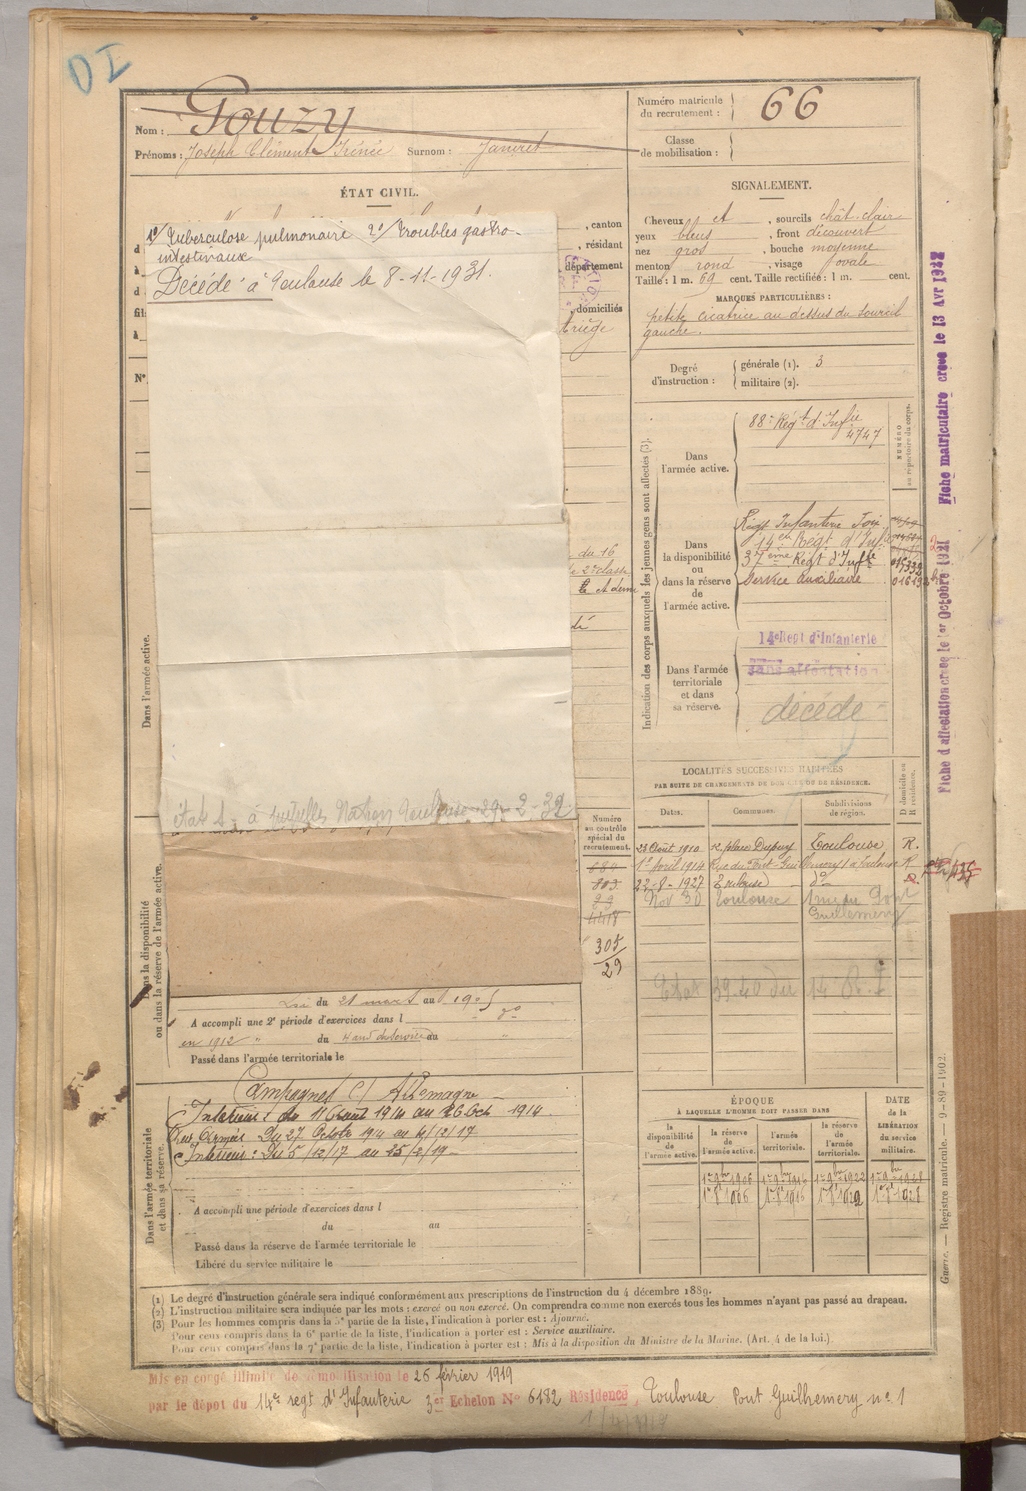 DI
Nom : Gouzy
Prénoms : Joseph Clément Irénée Surnom : Janvret
Numéro matricule
du recrutement : 66
Classe
de mobilisation :
ÉTAT CIVIL.
1º/ Tuberculose pulmonaire 2º/ Troubles gastro-
intestinaux
Décédé à Toulouse le 8-11-1931.
, canton
, résidant
département
, domiciliés
Ariège
Nº
SIGNALEMENT.
Cheveux et , sourcils chât-clair
yeux bleus , front découvert
nez gros , bouche moyenne
menton rond , visage ovale
Taille : 1 m. 69 cent. Taille rectifiée : 1 m. cent.
MARQUES PARTICULIÈRES :
petite cicatrice au dessus du sourcil
gauche.
Degré
d'instruction :
générale (1). 3
militaire (2).
Indication des corps auxquels les jeunes gens sont affectés (3).
NUMÉRO
au répertoire du corps.
Dans
l'armée active.
88e Régt d'Infie
4747
Dans
la disponibilité
ou
dans la réserve
de
l'armée active.
Régt Infanterie
14e Régt d'Inf
37ème Régt d'Infie 015332
Service auxiliaire
Dans l'armée
territoriale
et dans
sa réserve.
14e Regt d'Infanterie
sans affectation
décédé
du 16
de 2e classe
Dans l'armée active.
29-2-32
LOCALITÉS SUCCESSIVES HABITÉES
PAR SUITE DE CHANGEMENTS DE DOMICILE OU DE RÉSIDENCE.
Dates. Communes. Subdivisions
de région.
D domicile ou
R résidence.
23 Août 1910 12 place Dupuy Toulouse R.
1er Avril 1914 Toulouse R
22-8-1927 Toulouse dº R.
Nov 30 Toulouse 1 rue du Pont
Guillemery
Etat 39-40 du 14 R.I
Numéro
au contrôle
spécial du
recrutement.
305
29
Dans la disponibilité
ou dans la réserve de l'armée active.
Loi du 21 mars au 1905
A accompli une 2e période d'exercices dans l dº
en 1912 " du au
Passé dans l'armée territoriale le
Campagnes c/ Allemagne
Intérieur : du 11 août 1914 au 26 Oct 1914.
Aux Armées Du 27 Octobre 1914 au 4/12/17
Intérieur : Du 5/12/17 au 25/2/19
Dans l'armée territoriale
et dans sa réserve.
A accompli une période d'exercices dans l
du au
Passé dans la réserve de l'armée territoriale le
Libéré du service militaire le
ÉPOQUE
À LAQUELLE L'HOMME DOIT PASSER DANS
DATE
de la
LIBÉRATION
du service
militaire.
la
disponibilité
de
l'armée active.
la réserve
de
l'armée active.
l'armée
territoriale.
la réserve
de
l'armée
territoriale.
1er 9bre 1906 1er 9bre 1916 1er 9bre 1922 1er 9bre 1928
(1) Le degré d'instruction générale sera indiqué conformément aux prescriptions de l'instruction du 4 décembre 1889.
(2) L'instruction militaire sera indiquée par les mots : exercé ou non exercé. On comprendra comme non exercés tous les hommes n'ayant pas passé au drapeau.
(3) Pour les hommes compris dans la 5e partie de la liste, l'indication à porter est : Ajourné.
Pour ceux compris dans la 6e partie de la liste, l'indication à porter est : Service auxiliaire.
Pour ceux compris dans la 7e partie de la liste, l'indication à porter est : Mis à la disposition du Ministre de la Marine. (Art. 4 de la loi.)
Mis en congé illimité de démobilisation le 26 février 1919
par le dépôt du 14e regt d'Infanterie 3er Echelon Nº 6182 Résidence, Toulouse Pont Guilhemery nº 1
Fiche d'affectation créée le 1er Octobre 1921
Fiche matriculaire créée le 13 Avr 1922
Guerre. — Registre matricule. — 9-89-1902.